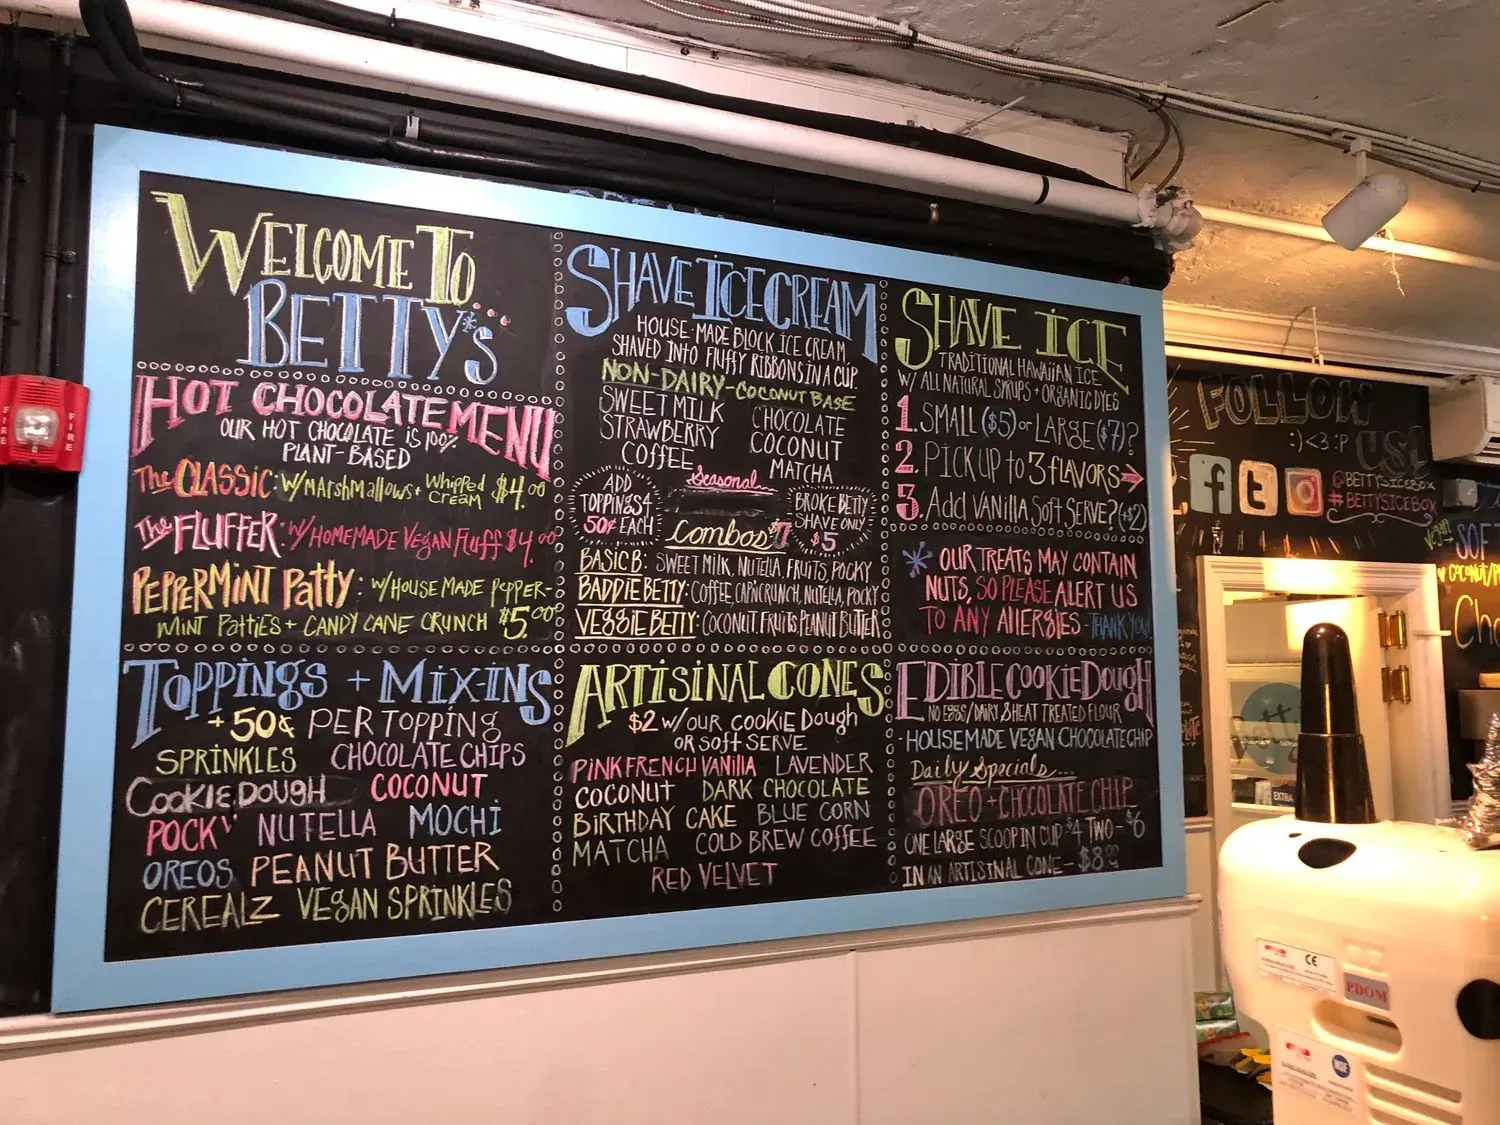 WELCOME TO
BETTY's
HOT CHOCOLATE MENU
OUR HOT CHOCOLATE IS 100%
PLANT-BASED
The CLASSIC: W/MARSHMALLOWS + WHIPPED CREAM $4.00
The FLUFFER: W/HOMEMADE VEGAN FLUFF $4.00
PEPPERMINT PATTY: W/HOUSE MADE PEPPER-
MINT PATTIES + CANDY CANE CRUNCH $5.00
TOPPINGS + MIX-INS
+50¢ PER TOPPING
SPRINKLES CHOCOLATE CHIPS
COOKIE DOUGH COCONUT
POCKY NUTELLA MOCHI
OREOS PEANUT BUTTER
CEREALZ VEGAN SPRINKLES
SHAVE ICE CREAM
HOUSE-MADE BLOCK ICE CREAM
SHAVED INTO FLUFFY RIBBONS IN A CUP
NON-DAIRY-COCONUT BASE
SWEET MILK CHOCOLATE
STRAWBERRY COCONUT
COFFEE MATCHA
Seasonal
ADD
TOPPINGS
50¢ EACH
BROKE BETTY
SHAVE ONLY
$5
Combos $7
BASIC B: SWEET MILK, NUTELLA, FRUITS, POCKY
BADDIE BETTY: COFFEE, CAP'N CRUNCH, NUTELLA, POCKY
VEGGIE BETTY: COCONUT, FRUITS, PEANUT BUTTER
ARTISINAL CONES
$2 W/OUR COOKIE DOUGH
OR SOFT SERVE
PINK FRENCH VANILLA LAVENDER
COCONUT DARK CHOCOLATE
BIRTHDAY CAKE BLUE CORN
MATCHA COLD BREW COFFEE
RED VELVET
SHAVE ICE
TRADITIONAL HAWAIIAN ICE
W/ ALL NATURAL SYRUPS + ORGANIC DYES
1. SMALL ($5) or LARGE ($7)?
2. PICK UP to 3 FLAVORS
3. Add VANILLA Soft SERVE? (+$2)
OUR TREATS MAY CONTAIN
NUTS, SO PLEASE ALERT US
TO ANY ALLERGIES - THANK YOU!
EDIBLE COOKIE DOUGH
NO EGGS/DAIRY & HEAT TREATED FLOUR
- HOUSEMADE VEGAN CHOCOLATE CHIP
Daily Specials...
OREO + CHOCOLATE CHIP
ONE LARGE SCOOP IN CUP $4 TWO - $6
IN AN ARTISINAL CONE - $8.00
FOLLOW
:) <3 :P US!
@BETTYSICEBOX
#BETTYSICEBOX
FIRE
FIRE
EXTRA
PDOM
CE
NSF